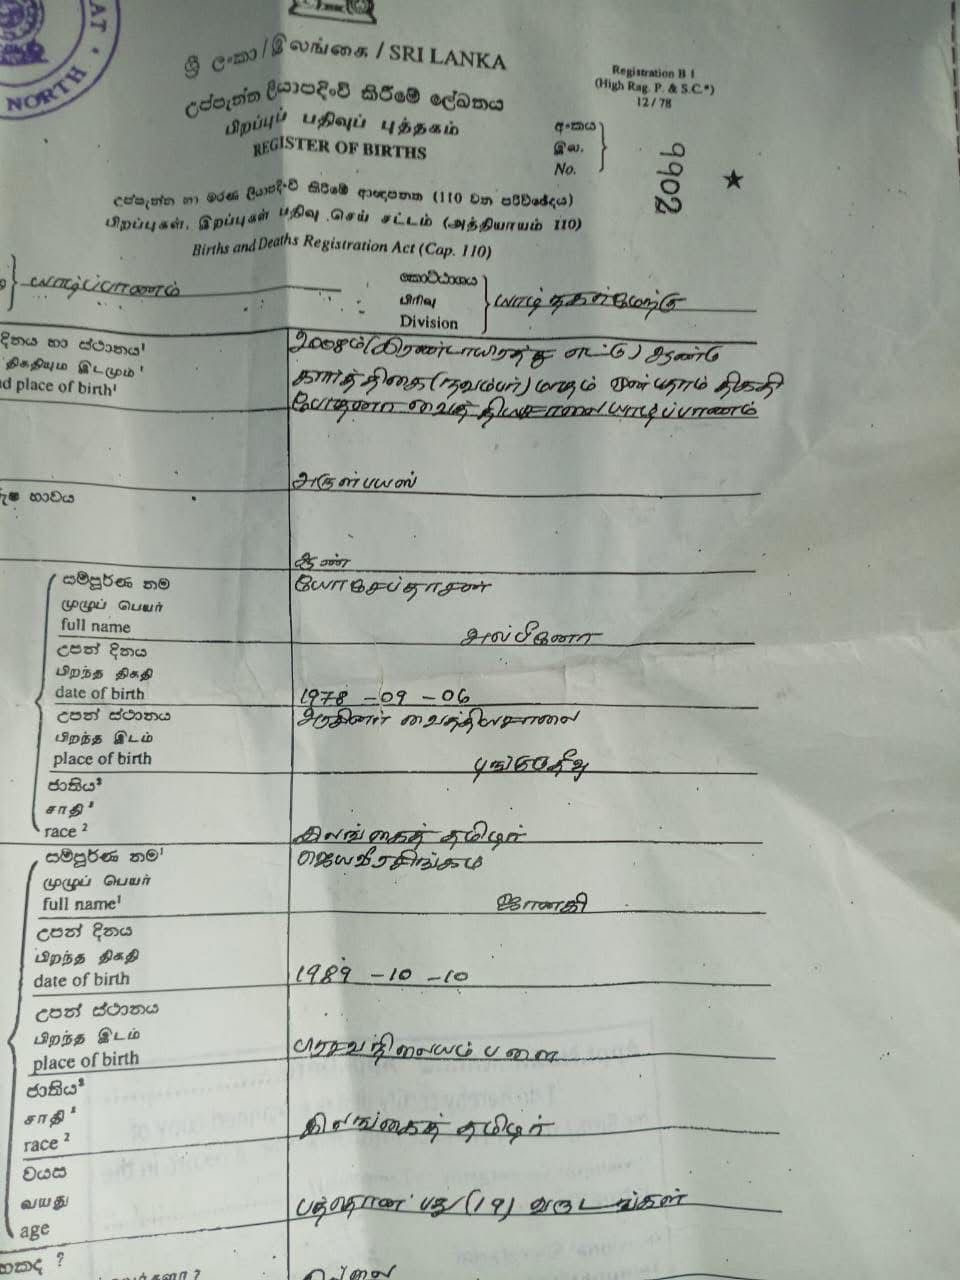 NORTH
ශ්‍රී ලංකා / இலங்கை / SRI LANKA
Registration B 1
(High Rag. P. & S.C.*)
12 / 78
උප්පැන්න ලියාපදිංචි කිරීමේ ලේඛනය
பிறப்புப் பதிவுப் புத்தகம்
REGISTER OF BIRTHS
අංකය
இல.
No.
9902
උප්පැන්න හා මරණ ලියාපදිංචි කිරීමේ ආඥාපනත (110 වන පරිච්ඡේදය)
பிறப்புகள், இறப்புகள் பதிவு செய் சட்டம் (அத்தியாயம் 110)
Births and Deaths Registration Act (Cap. 110)
யாழ்ப்பாணம்
කොට්ඨාසය
பிரிவு
Division
දිනය හා ස්ථානය¹
திகதியும் இடமும்¹
place of birth¹
2008ம் (இரண்டாயிரத்து எட்டு) ஆண்டு
கார்த்திகை (நவம்பர்) மாதம் திகதி
போதனா வைத்தியசாலை யாழ்ப்பாணம்
அருள்பயஸ்
භාවය
ஆண்
සම්පූර්ණ නම
முழுப் பெயர்
full name
யோசேப்தாசன்
அல்பினோ
උපන් දිනය
பிறந்த திகதி
date of birth
1978 - 09 - 06
උපන් ස්ථානය
பிறந்த இடம்
place of birth
வைத்தியசாலை
புங்குடுதீவு
ජාතිය²
சாதி²
race ²
இலங்கைத் தமிழர்
සම්පූර්ණ නම¹
முழுப் பெயர்
full name¹
ஜெயவீரசிங்கம்
ஜானகி
උපන් දිනය
பிறந்த திகதி
date of birth
1989 - 10 - 10
උපන් ස්ථානය
பிறந்த இடம்
place of birth
பிரசவநிலையம் பளை
ජාතිය²
சாதி²
race ²
இலங்கைத் தமிழர்
වයස
வயது
age
பத்தொன்பது (19) வருடங்கள்
இல்லை